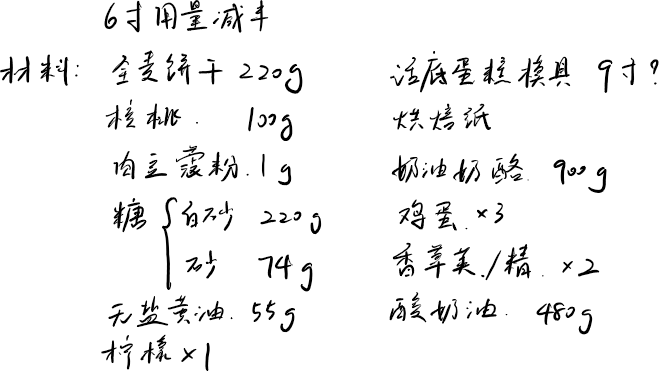 6寸用量减半
材料: 全麦饼干 220g
核桃. 100g
肉豆蔻粉. 1g
糖 { 白砂 220g
砂 74g
无盐黄油. 55g
柠檬 ×1
活底蛋糕模具 9寸?
烘焙纸
奶油奶酪. 900g
鸡蛋. ×3
香草荚./精. ×2
酸奶油. 480g